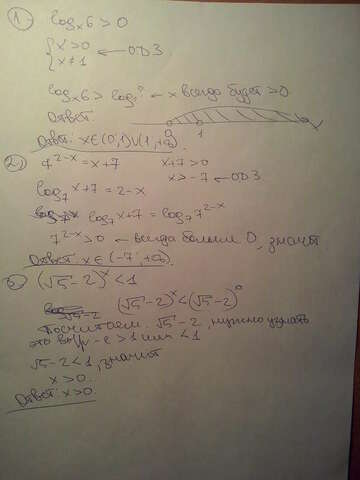 1) log_x 6 > 0
{ x > 0
{ x ≠ 1 ← ОДЗ
log_x 6 > log ← x всегда будет > 0
Ответ:
0 1
Ответ: x ∈ (0;1)∪(1;+∞)
2) 7^{2-x} = x+7 x+7 > 0
x > -7 ← ОДЗ
log_7 x+7 = 2-x
log_7 x+7 = log_7 7^{2-x}
7^{2-x} > 0 ← всегда больше 0, значит
Ответ: x ∈ (-7;+∞)
3) (√5-2)^x < 1
(√5-2)^x < (√5-2)^0
√5-2
Посчитаем √5-2, нужно узнать
это > 1 или < 1
√5-2 < 1, значит
x > 0.
Ответ: x > 0.